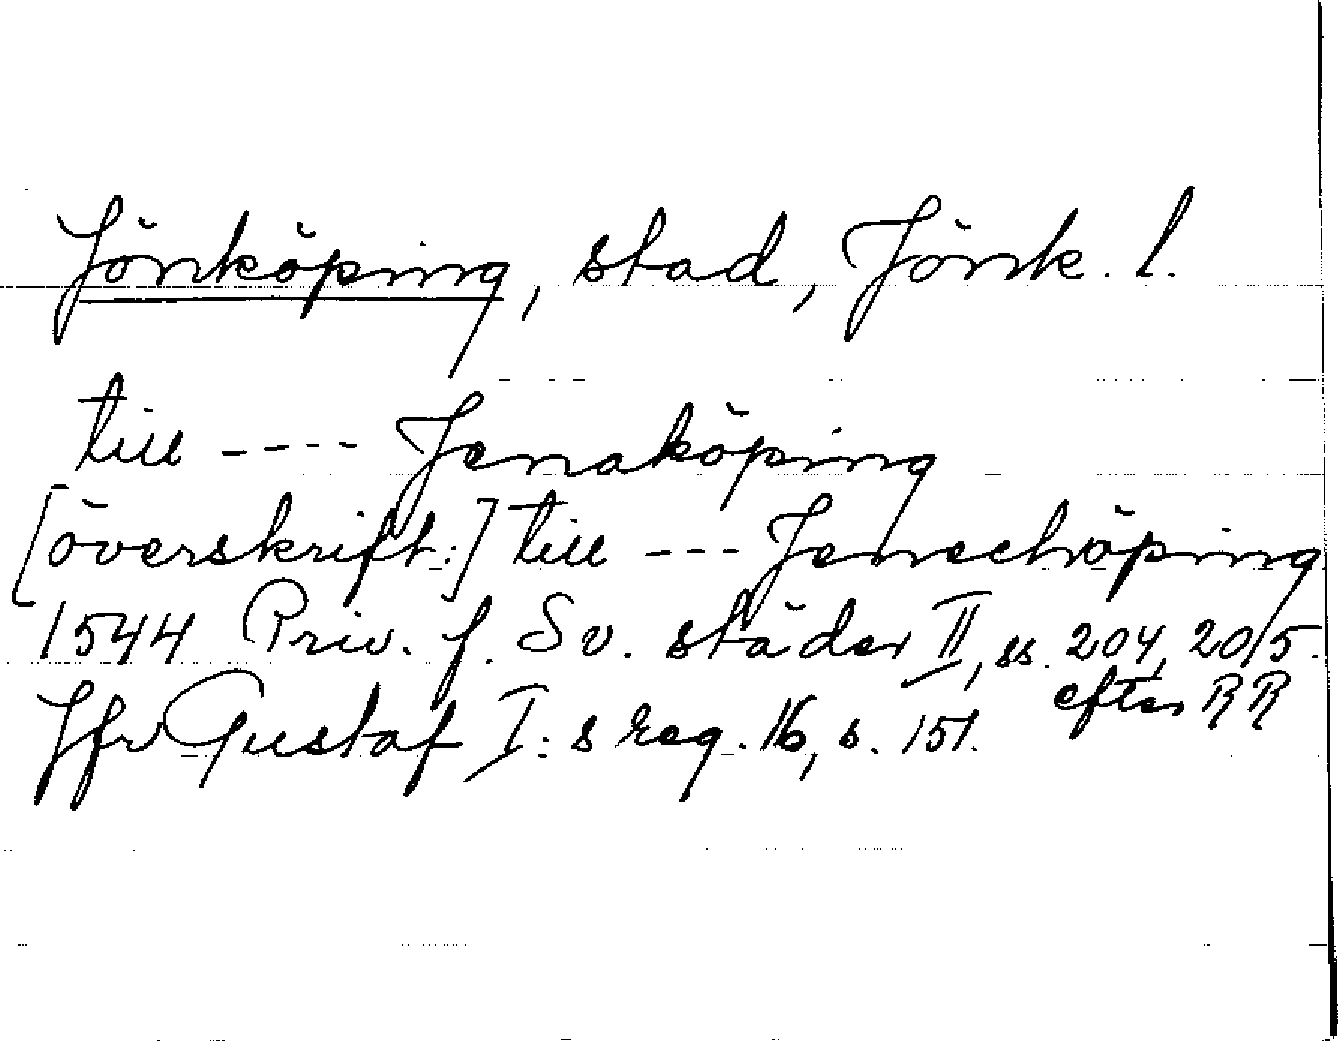 Jönköping, stad, Jönk. l.
till ---- Jenaköping
[överskrift:] till --- Jenechöping
1544 Priv. f. Sv. städer II, ss. 204, 205.
efter RR
Jfr Gustaf I:s reg. 16, s. 151.